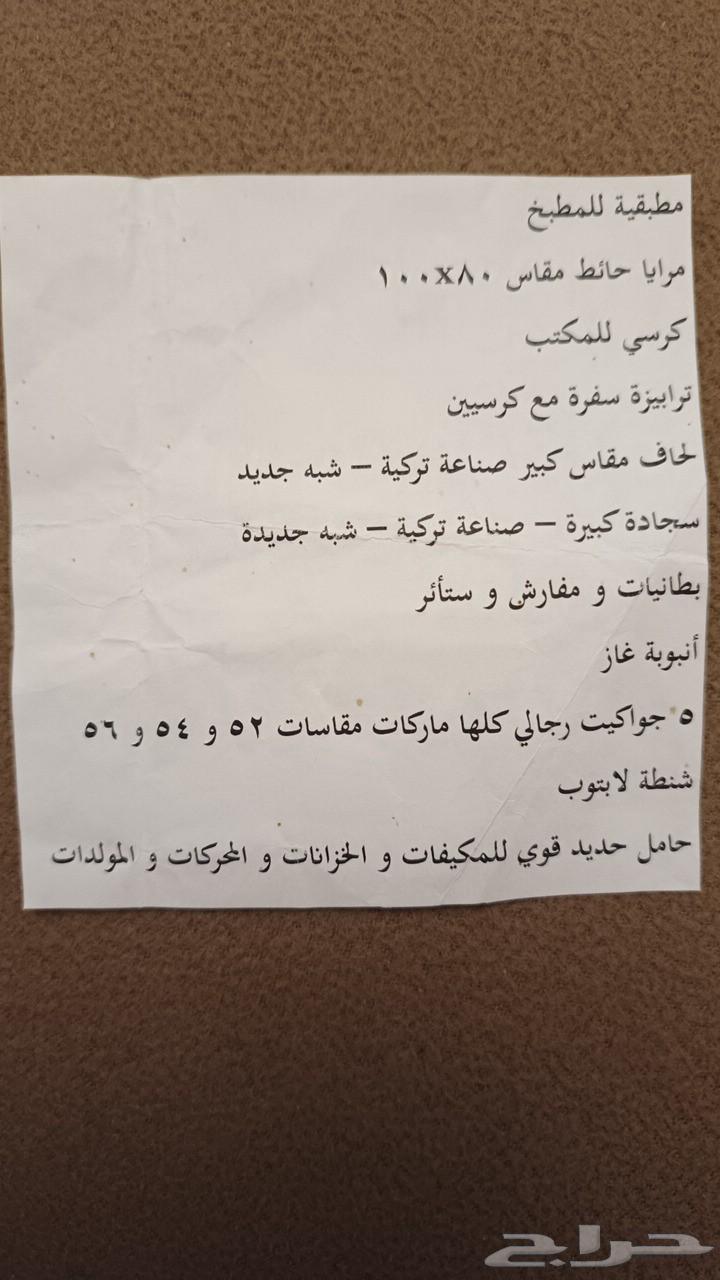 مطبقية للمطبخ
مرايا حائط مقاس ٨٠x١٠٠
كرسي للمكتب
ترابيزة سفرة مع كرسيين
لحاف مقاس كبير صناعة تركية – شبه جديد
سجادة كبيرة – صناعة تركية – شبه جديدة
بطانيات و مفارش و ستأئر
أنبوبة غاز
٥ جواكيت رجالي كلها ماركات مقاسات ٥٢ و ٥٤ و ٥٦
شنطة لابتوب
حامل حديد قوي للمكيفات و الخزانات و المحركات و المولدات
حراج